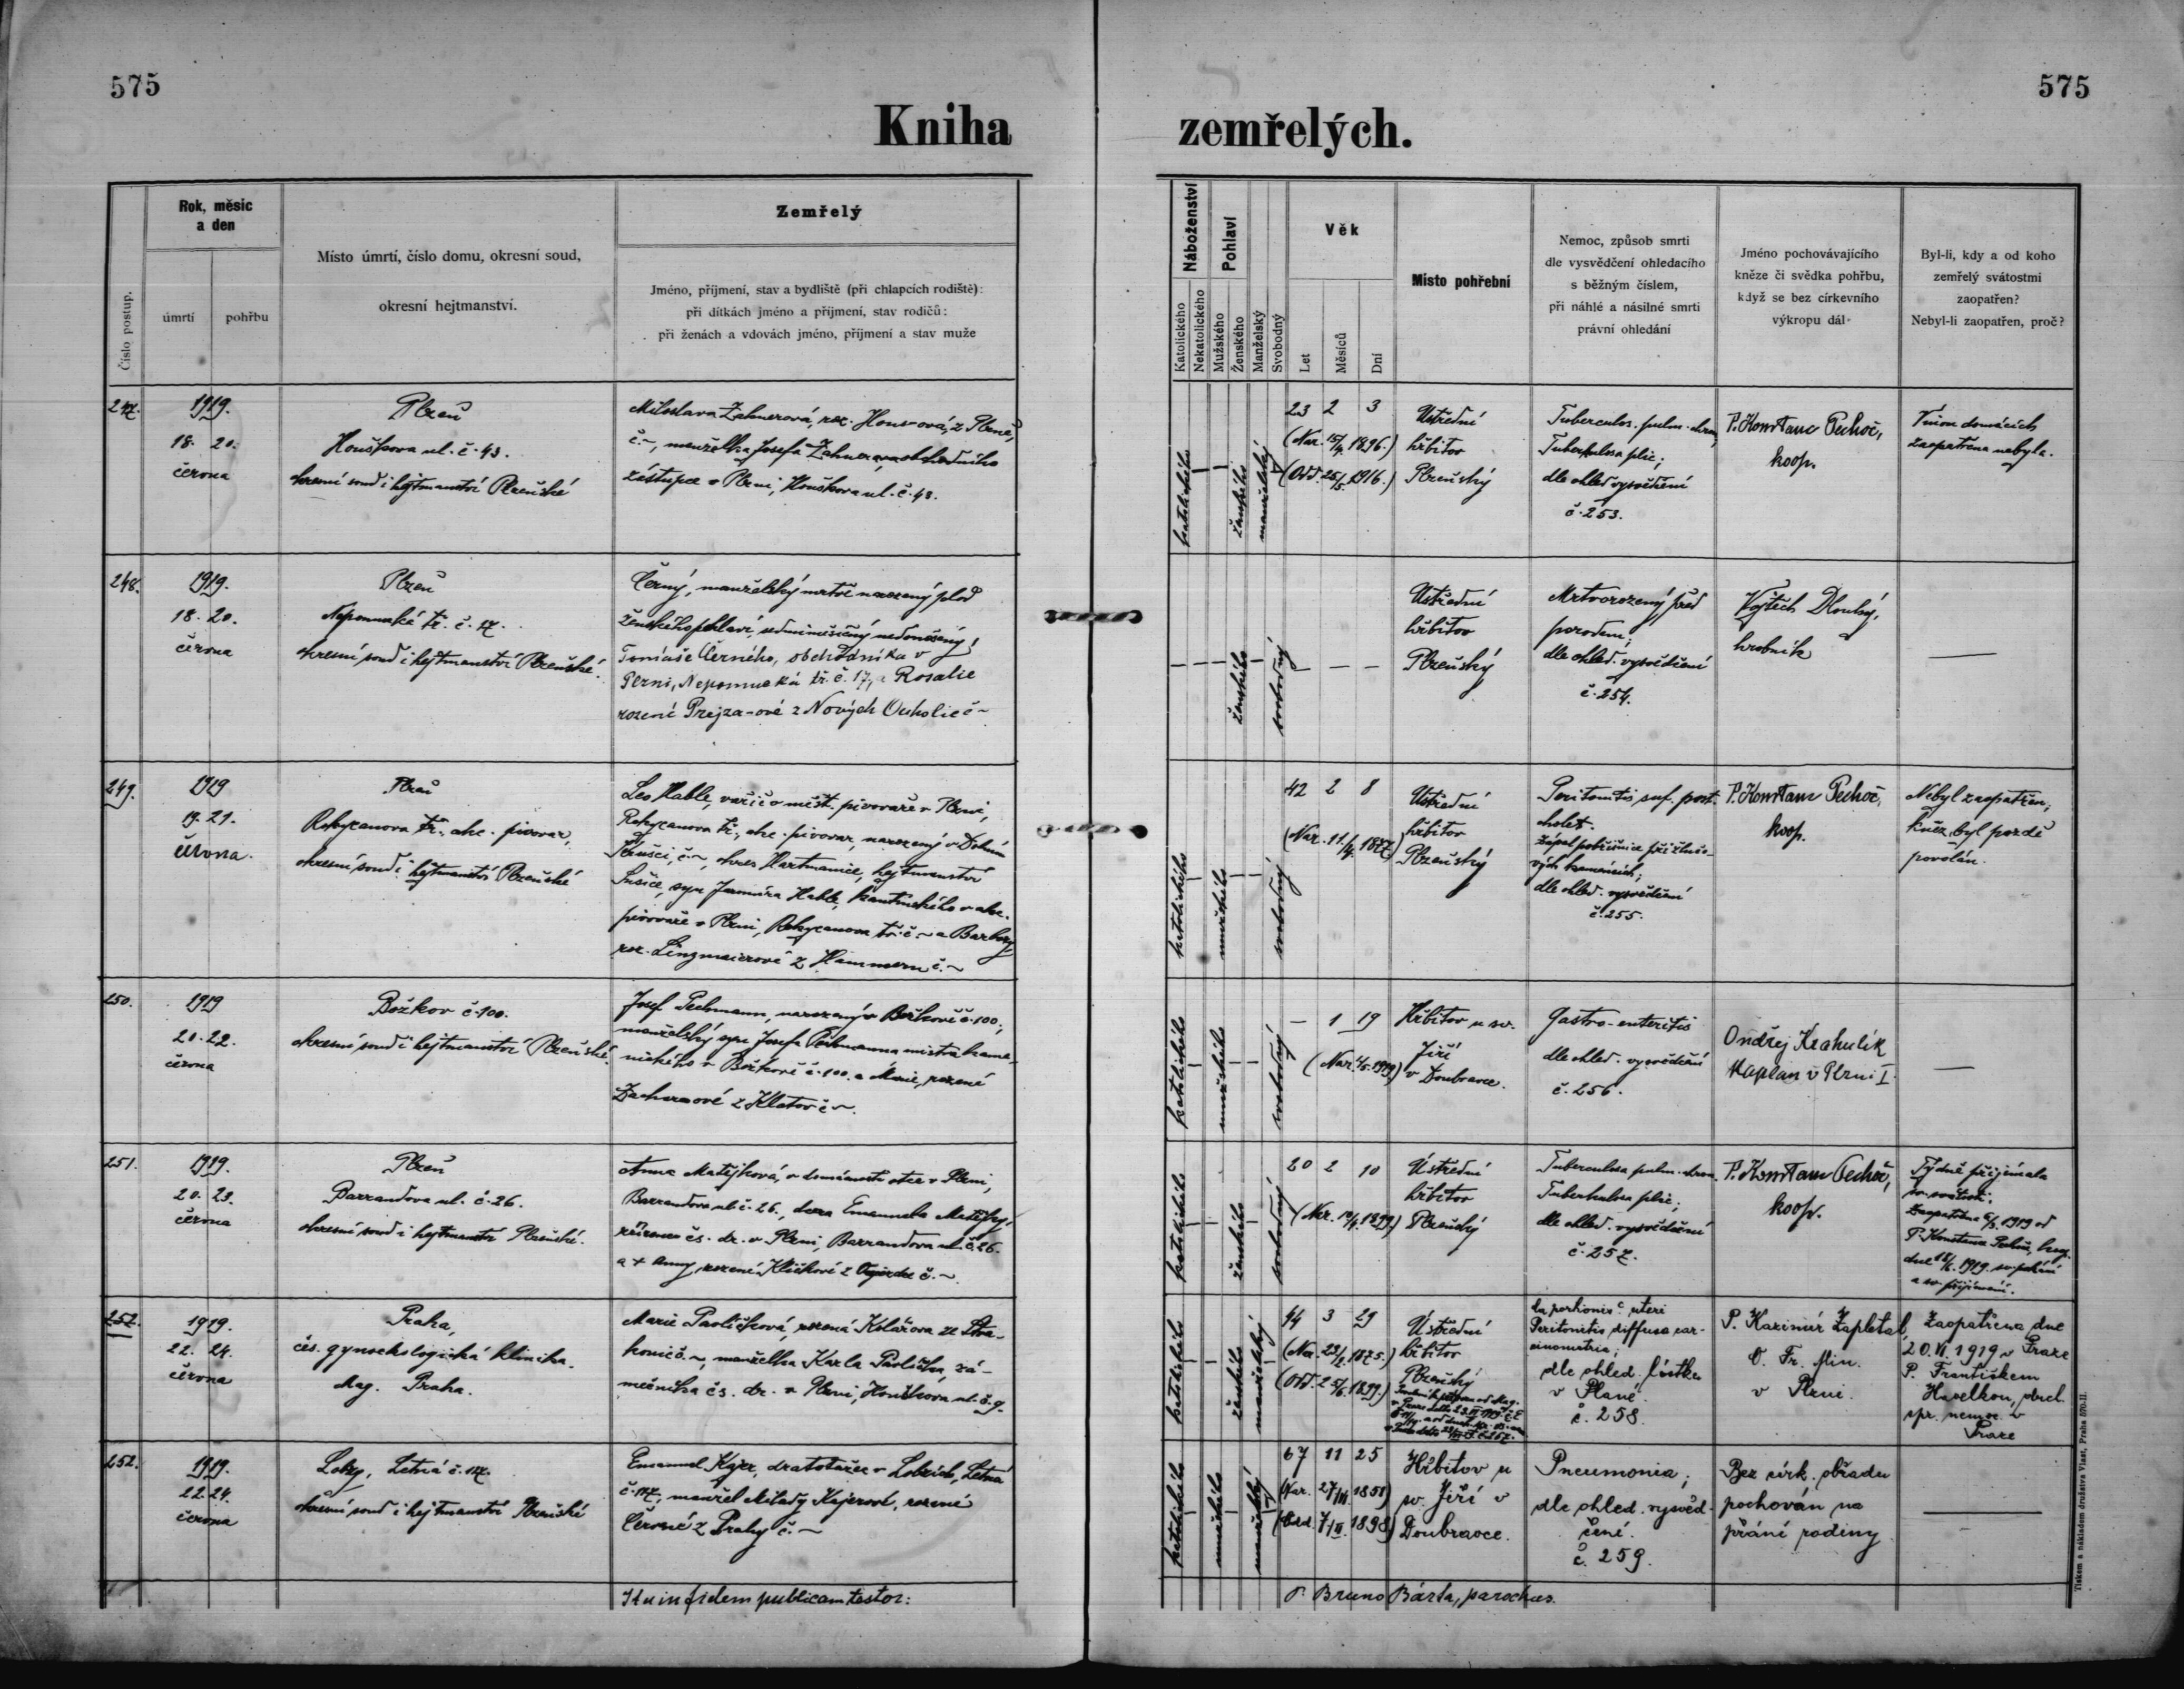 575
575
Kniha zemřelých.
Číslo postup.
Rok, měsíc
a den
úmrtí
pohřbu
Místo úmrtí, číslo domu, okresní soud,
okresní hejtmanství.
Zemřelý
Jméno, příjmení, stav a bydliště (při chlapcích rodiště):
při dítkách jméno a příjmení, stav rodičů:
při ženách a vdovách jméno, příjmení a stav muže
Náboženství
Katolického
Nekatolického
Pohlaví
Mužského
Ženského
Manželský
Svobodný
Věk
Let
Měsíců
Dní
Místo pohřební
Nemoc, způsob smrti
dle vysvědčení ohledacího
s běžným číslem,
při náhlé a násilné smrti
právní ohledání
Jméno pochovávajícího
kněze či svědka pohřbu,
když se bez církevního
výkropu dál
Byl-li, kdy a od koho
zemřelý svátostmi
zaopatřen?
Nebyl-li zaopatřen, proč?
247.
1919.
18. 20.
června
Plzeň
Houškova ul. č. 43.
okresní soud i hejtmanství Plzeňské
Miloslava Zahnerová, roz. Housová, z Plzně,
č. ~, manželka Josefa Zahnera, obchodního
zástupce v Plzni, Houškova ul. č. 43.
katolického
ženského
manželský
23 2 3
(Nar. 15/4 1896.)
(Odd. 25/5 1916.)
Ústřední
hřbitov
Plzeňský
Tuberculos. pulm. chron.
Tuberkulosa plic;
dle ohled. vysvědčení
č. 253.
P. Konstanc Pechoč,
koop.
Vinou domácích
zaopatřena nebyla.
248.
1919.
18. 20.
června
Plzeň
Nepomucká tř. č. 17.
okresní soud i hejtmanství Plzeňské.
Černý, manželský mrtvě narozený plod
ženského pohlaví, sedmiměsíčný nedonošený;
Tomáše Černého, obchodníka v
Plzni, Nepomucká tř. č. 17, a Rosalie
rozené Prejza-ové z Nových Ouholic č ~
ženského
svobodný
Ústřední
hřbitov
Plzeňský
Mrtvorozený před
porodem;
dle ohled. vysvědčení
č. 254.
Vojtěch Dlouhý,
hrobník
—
249.
1919
19. 21.
června.
Plzeň
Rokycanova tř., akc. pivovar,
okresní soud i hejtmanství Plzeňské
Leo Hable, vařič v měšt. pivovaře v Plzni,
Rokycanova tř., akc. pivovar, narozený v Dolním
č. ~, okres Hartmanice, hejtmanství
Sušice, syn Jaromíra Hable, kantýnského v akc.
pivovaře v Plzni, Rokycanova tř. č ~ a Barbory
roz. Lingmaierové z Hammern č. ~
katolického
mužského
svobodný
42 2 8
(Nar. 11/4 1877)
Ústřední
hřbitov
Plzeňský
Peritonitis suf. post.
cholet.
Zápal pobřišnice při žlučo-
vých kamenech;
dle ohled. vysvědčení
č. 255.
P. Konstanc Pechoč,
koop.
Nebyl zaopatřen;
kněz byl pozdě
povolán.
250.
1919
20. 22.
června
Božkov č. 100.
okresní soud i hejtmanství Plzeňské.
Josef Pechmann, narozený v Božkově č. 100,
manželský syn Josefa Pechmanna mistra kame-
nického v Božkově č. 100. a Marie, rozené
Zacharové z Klatov č ~.
katolického
mužského
svobodný
— 1 19
(Nar. 1/5. 1919)
Hřbitov u sv.
Jiří
v Doubravce.
Gastro-enteritis
dle ohled. vysvědčení
č. 256.
Ondřej Krahulík
Kaplan v Plzni I.
—
251.
1919.
20. 23.
června
Plzeň
Barrandova ul. č. 26.
okresní soud i hejtmanství Plzeňské.
Anna Matějková, v domácnosti otce v Plzni,
Barrandova ul. č. 26., dcera Emanuela Matějky,
čs. dr. v Plzni, Barrandova ul. č. 26.
a + Anny, rozené Kličkové z č. ~.
katolického
ženského
svobodný
20 2 10
(Nar. 10/4 1899.)
Ústřední
hřbitov
Plzeňský
Tuberculosa pulm. chron.
Tuberkulosa plic;
dle ohled. vysvědčení
č. 257.
P. Konstanc Pechoč,
koop.
Týdně přijímala
sv. svátosti.
Zaopatřena 1919 od
P. Konstance Pechoče,
dne 1919 sv. pokání
a sv. přijímání.
252.
1919.
22. 24.
června
Praha,
čes. gynaekologická klinika.
Mag. Praha.
Marie Pavlíčková, rozená Kolářova ze Stra-
konic č. ~, manželka Karla Pavlíčka, zá-
mečníka čs. dr. v Plzni, Houškova ul. č. 9.
katolického
ženského
manželský
44 3 29
(Nar. 22/2 1875.)
(Odd. 25/6 1899.)
Ústřední
hřbitov
Plzeňský
Ca. portionis uteri
Peritonitis diffusa car-
cinomatria;
dle ohled. lístku
v Plané
č. 258.
P. Kazimír Zapletal,
O. Fr. Min.
v Plzni.
Zaopatřena dne
20. VI. 1919 v Praze
P. Františkem
Havelkou, duch.
spr. nemoc. v
Praze
252.
1919.
22. 24.
června
Lobzy, Letná č. 117.
okresní soud i hejtmanství Plzeňské
Emanuel Kajer, dratotažec v Lobzích, Letná
č. 117, manžel Milady Kajerové, rozené
Červené z Prahy č. ~
katolického
mužského
manželský
67 11 25
(Nar. 27/VI. 1851)
(Odd. 7/II. 1898)
Hřbitov u
sv. Jiří v
Doubravce.
Pneumonia;
dle ohled. vysvěd-
čení.
č. 259.
Bez círk. obřadu
pochován na
přání rodiny
—
Ita in fidem publicam testor:
P. Bruno Bárta, parochus.
Tiskem a nákladem družstva Vlast, Praha 570-II.